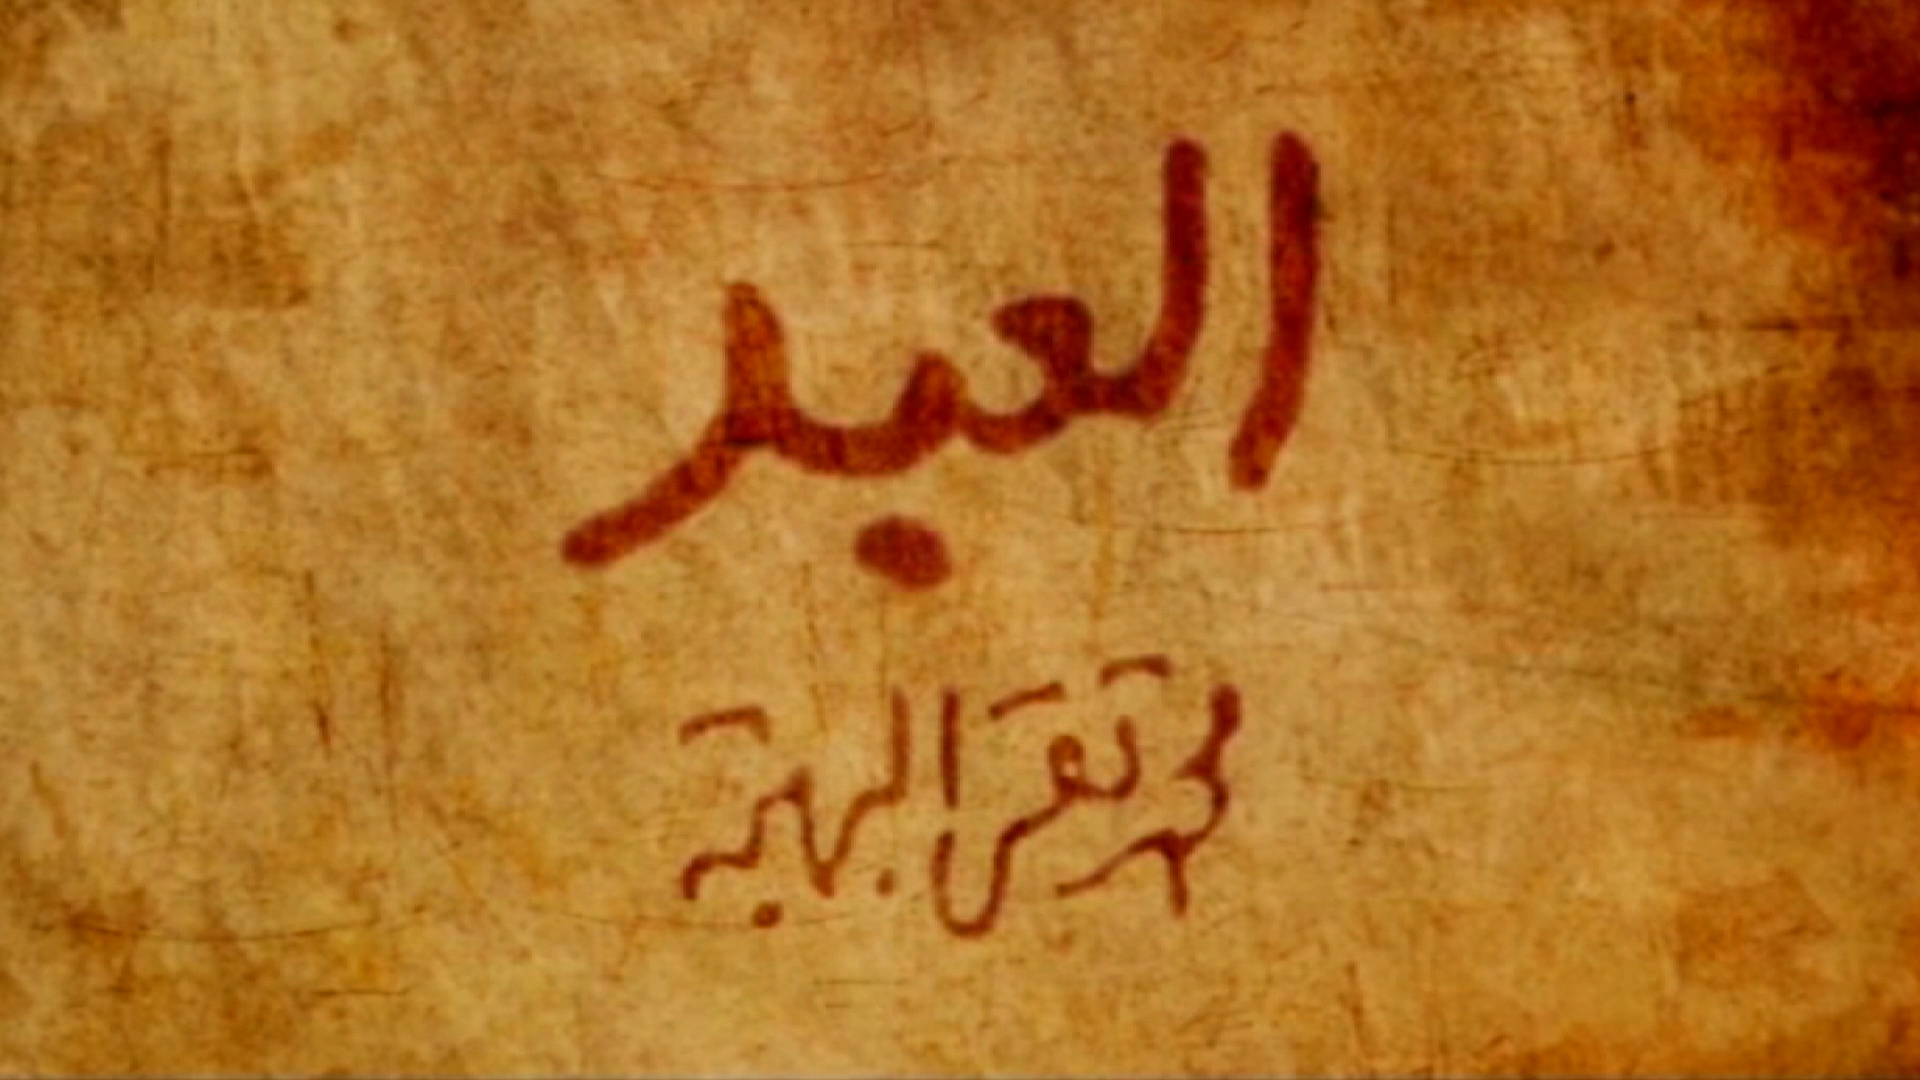 العبد
محمد تقی البهجة